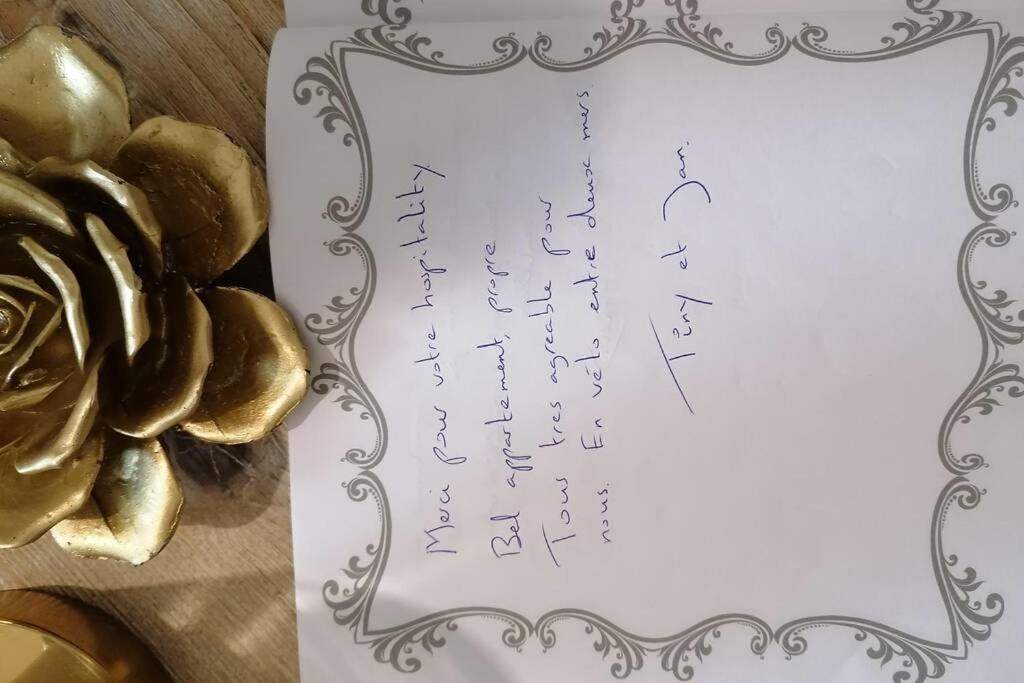 Merci pour votre hospitality.
Bel appartement, propre
Tous tres agreable pour
nous. En vélo entre deux mers.
Tiny et Jan.